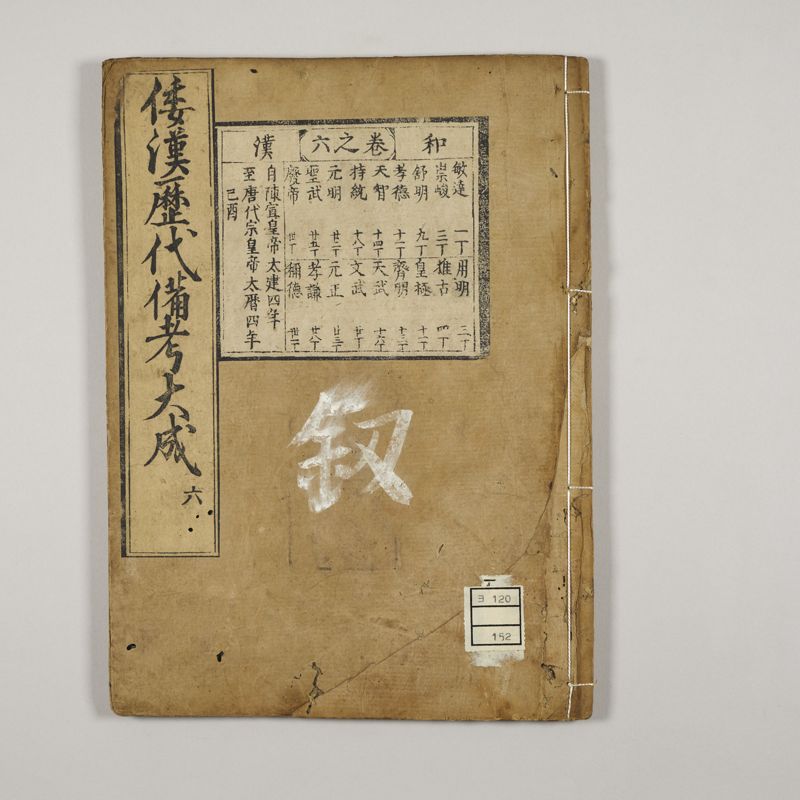 倭漢歴代備考大成 六
和 卷之六 漢
敏達 一丁 用明 三丁
崇峻 三丁 推古 四丁
舒明 九丁 皇極 十一丁
孝德 十一丁 齊明 十三丁
天智 十四丁 天武 十六丁
持統 十八丁 文武 廿丁
元明 廿二丁 元正 廿三丁
聖武 廿五丁 孝謙 廿八丁
廢帝 丗丁 稱德 丗一丁
自陳宣皇帝太建四年
至唐代宗皇帝太暦四年
己酉
釼
ヨ 120
152